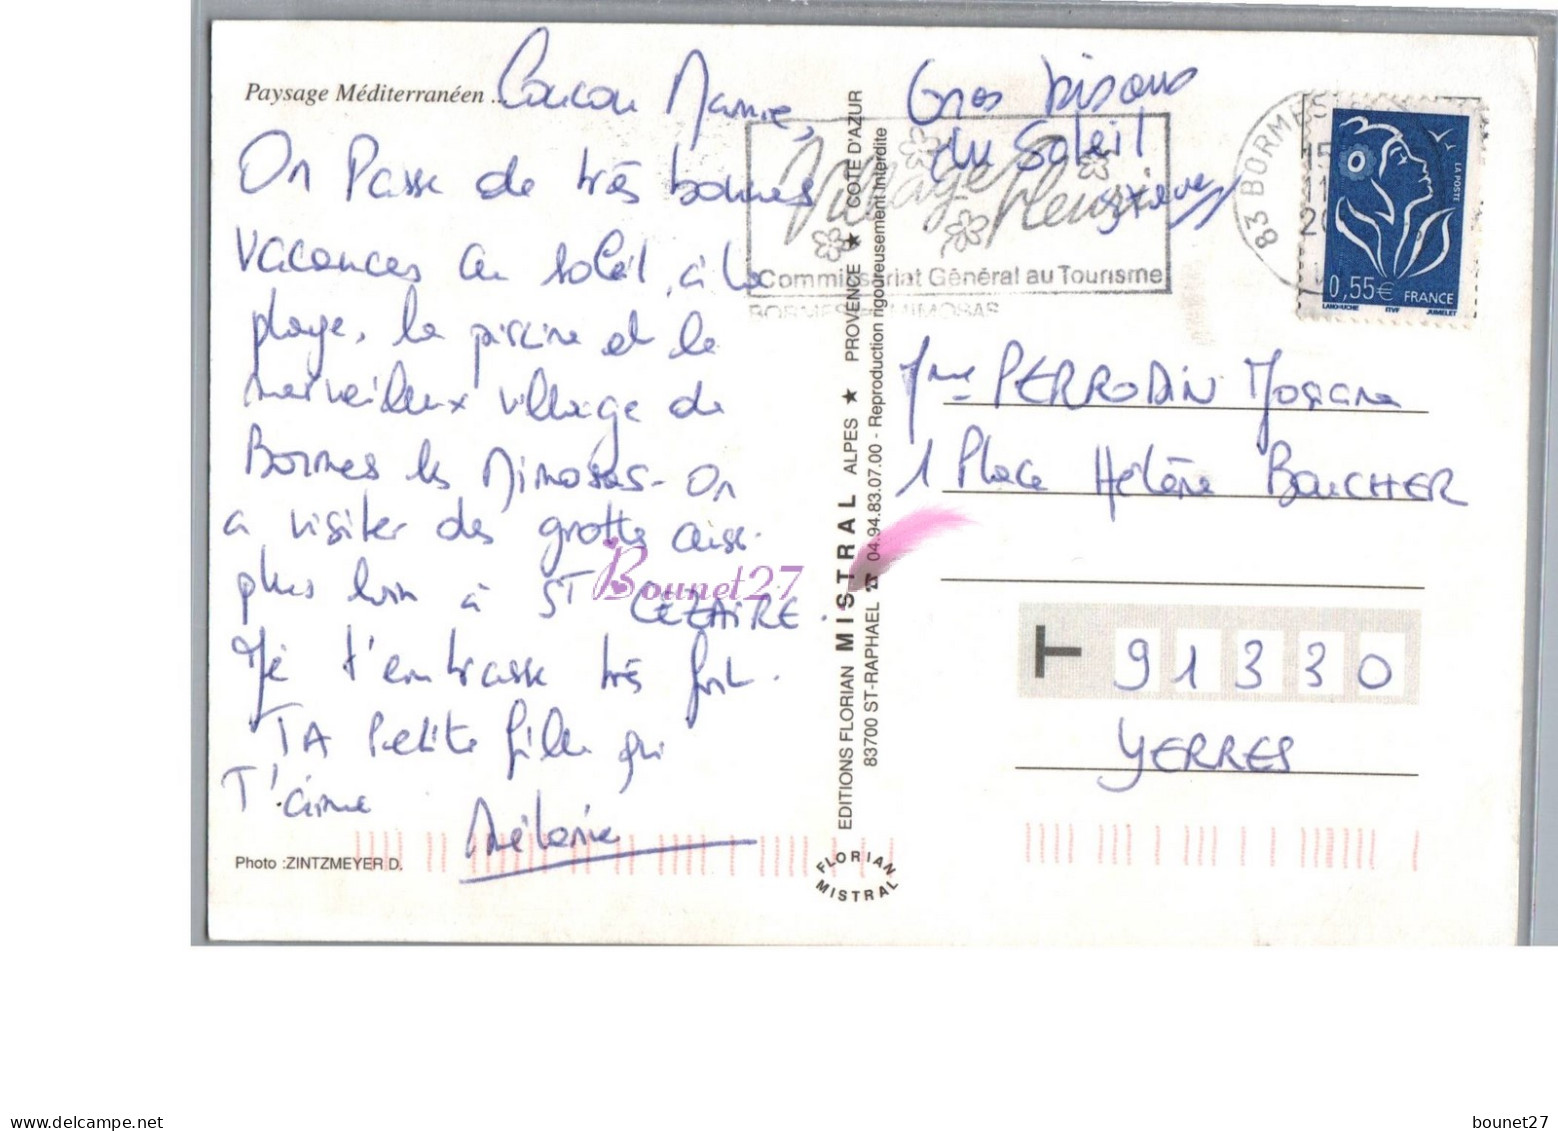 Paysage Méditerranéen ...
Coucou Mamie,
On Passe de très bonnes
vacances au soleil, à la
plage, la piscine et le
merveilleux village de
Bormes les Mimosas - On
a visiter des grottes aussi
plus loin à ST CEZAIRE.
Je t'embrasse très fort.
TA Petite fille qui
T'aime
Mélanie
Photo :ZINTZMEYER D.
Gros bisous
du Soleil
Village fleuri
Commissariat Général au Tourisme
BORMES les MIMOSAS
83 BORMES
15
11
20
LA POSTE
0,55€ FRANCE
LAMOUCHE ITVF JUMELET
EDITIONS FLORIAN MISTRAL ALPES ★ PROVENCE ★ COTE D'AZUR
83700 ST-RAPHAEL ☎ 04.94.83.07.00 - Reproduction rigoureusement interdite
FLORIAN
MISTRAL
Mme PERRODIN
1 Place Hélène BOUCHER
T 91330
YERRES
Bounet27
delcampe.net
bounet27